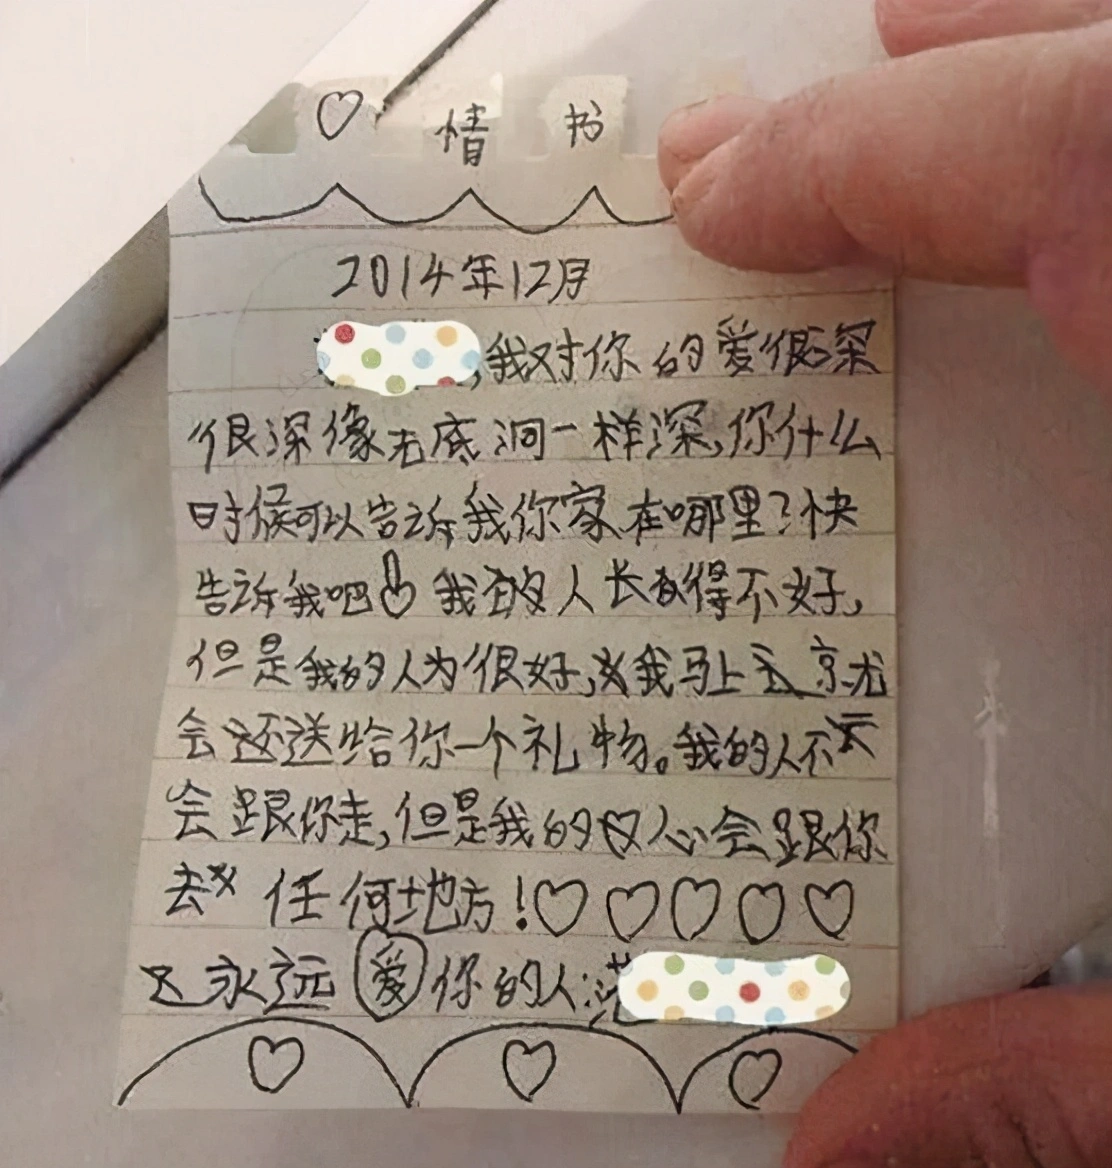 情书
2014年12月
,我对你的爱很深
很深像无底洞一样深,你什么
时候可以告诉我你家在哪里?快
告诉我吧 我的人长得不好,
但是我的人为很好,我马上去京尤
会还送给你一个礼物。我的人不
会跟你走,但是我的心会跟你
去任何地方!
永远爱你的人:范